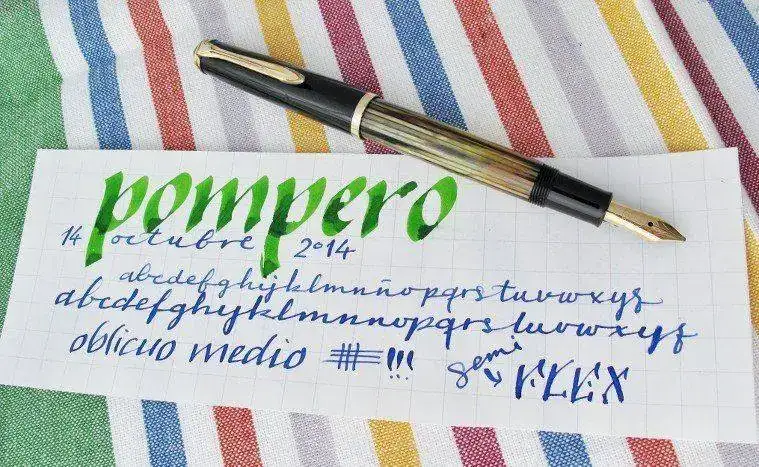 pompero
14 octubre 2014
abcdefghyklmnñopqrstuvwxyz
abcdefghyklmnnopqrstuvwxyz
oblicuo medio !!!
semi
FLEX